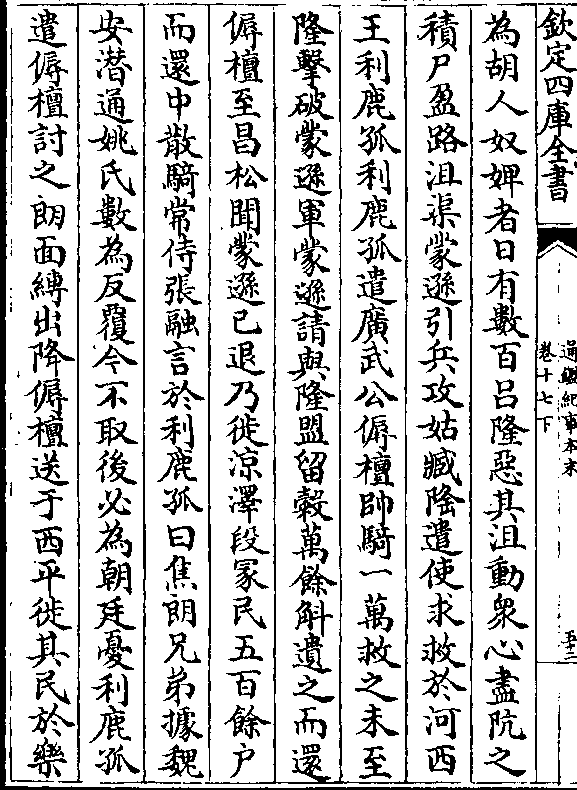 欽定四庫全書
通鑑紀事本末
卷十七下
五十二
為胡人奴婢者日有數百吕隆惡其沮動衆心盡阬之
積尸盈路沮渠蒙遜引兵攻姑臧隆遣使求救於河西
王利鹿孤利鹿孤遣廣武公傉檀帥騎一萬救之未至
隆擊破蒙遜軍蒙遜請與隆盟留穀萬餘斛遺之而還
傉檀至昌松聞蒙遜已退乃徙涼澤段冢民五百餘户
而還中散騎常侍張融言於利鹿孤曰焦朗兄弟據魏
安潛通姚氏數為反覆今不取後必為朝廷憂利鹿孤
遣傉檀討之朗面縛出降傉檀送于西平徙其民於樂